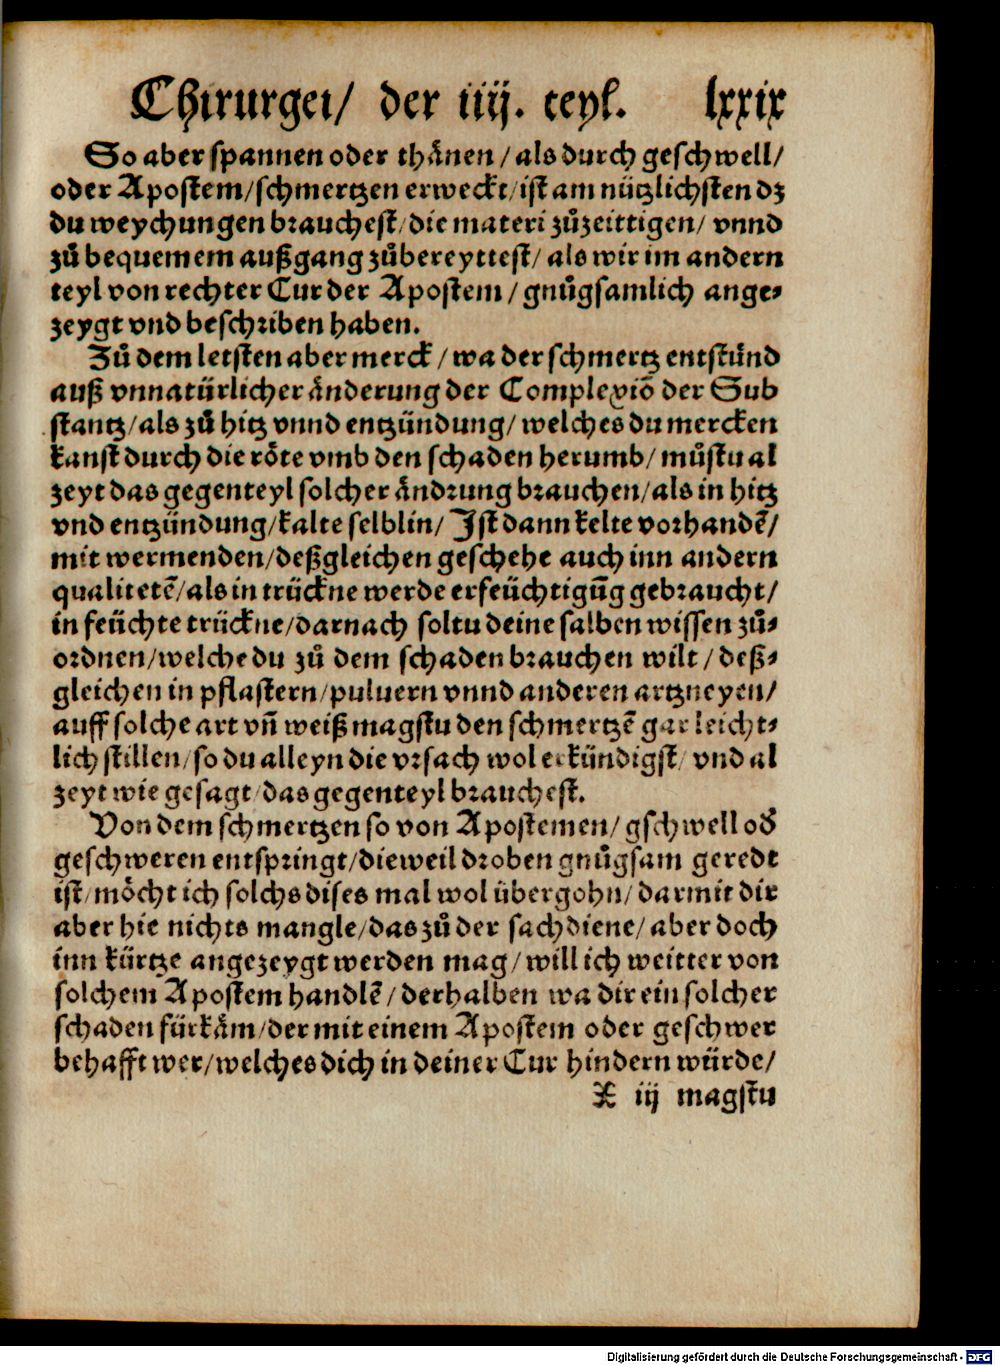 Chirurgei/ der iiij. teyl. lxxix
So aber spannen oder thånen/als durch geschwell/
oder Apostem/schmertzen erweckt/ist am nützlichsten dz
du weychungen brauchest/die materi zůzeittigen/ vnnd
zů bequemem außgang zůbereyttest/als wir im andern
teyl von rechter Cur der Apostem/gnůgsamlich ange-
zeygt vnd beschriben haben.
Zů dem letsten aber merck/wa der schmertz entstünd
auß vnnatürlicher änderung der Complexiō der Sub
stantz/als zů hitz vnnd entzündung/welches du mercken
kanst durch die röte vmb den schaden herumb/můstu al
zeyt das gegenteyl solcher ändrung brauchen/als in hitz
vnd entzündung/kalte selblin/ Ist dann kelte vorhandē/
mit wermenden/deßgleichen geschehe auch inn andern
qualitetē/als in trückne werde erfeüchtigūg gebraucht/
in feüchte trückne/darnach soltu deine salben wissen zů-
ordnen/welche du zů dem schaden brauchen wilt/deß-
gleichen in pflastern/puluern vnnd anderen artzneyen/
auff solche art vñ weiß magstu den schmertzē gar leicht-
lich stillen/so du alleyn die vrsach wol erkündigst/ vnd al
zeyt wie gesagt/das gegenteyl brauchest.
Von dem schmertzen so von Apostemen/gschwell oď
geschweren entspringt/dieweil droben gnůgsam geredt
ist/möcht ich solchs dises mal wol übergohn/darmit dir
aber hie nichts mangle/das zů der sach diene/aber doch
inn kürtze angezeygt werden mag/will ich weitter von
solchem Apostem handlē/derhalben wa dir ein solcher
schaden fürkäm/der mit einem Apostem oder geschwer
behafft wer/welches dich in deiner Cur hindern würde/
X iij magstu
Digitalisierung gefördert durch die Deutsche Forschungsgemeinschaft - DFG